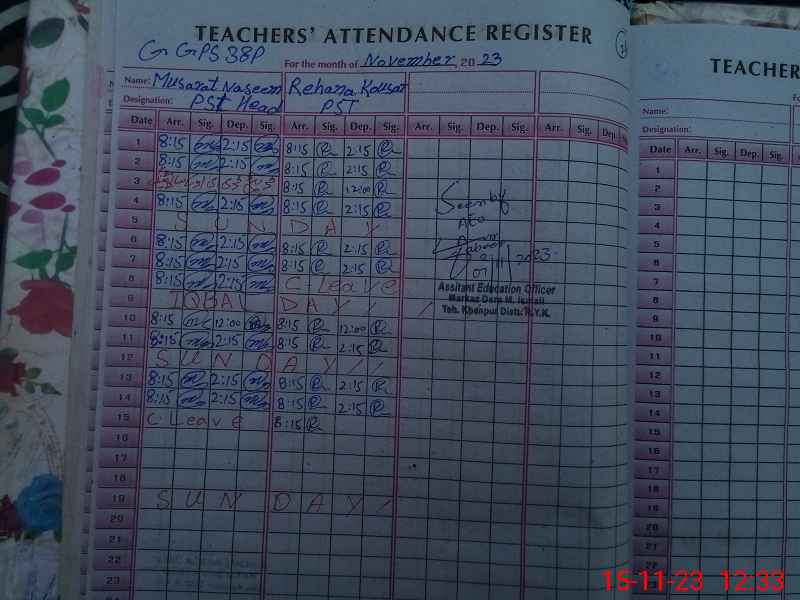 TEACHERS' ATTENDANCE REGISTER
G GPS 38P
For the month of November, 2023
Name: Musarat Naseem Rehana Kousar
Designation: PST Head PST
Date Arr. Sig. Dep. Sig. Arr. Sig. Dep. Sig. Arr. Sig. Dep. Sig. Arr. Sig. Dep.
1 8:15 2:15 8:15 R 2:15 R
2 8:15 2:15 8:15 R 2:15 R
3 8:15 R 12:00 R
4 8:15 2:15 8:15 R 2:15 R
5 SUNDAY
6 8:15 2:15 8:15 R 2:15 R
7 8:15 2:15 8:15 R 2:15 R
8 8:15 2:15 C Leave
9 IQBAL DAY
10 8:15 12:00 8:15 R 12:00 R
11 8:15 2:15 8:15 R 2:15 R
12 SUNDAY
13 8:15 2:15 8:15 R 2:15 R
14 8:15 2:15 8:15 R 2:15 R
15 C Leave 8:15 R
16
17
18
19 SUNDAY
20
21
22
23
Seen by
AEO
Assitant Education Officer
Teh. Khanpur Distt: R.Y.K.
TEACHER
Name:
Designation:
Date Arr. Sig. Dep. Sig.
1
2
3
4
5
6
7
8
9
10
11
12
13
14
15
16
17
18
19
20
21
22
15-11-23 12:33